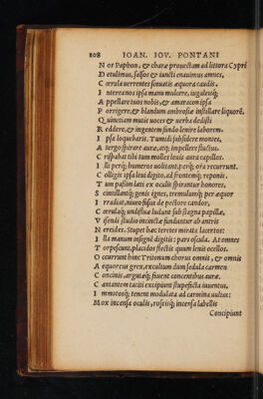 108 IOAN. IOV. PONTANI
Nos Paphon, & charæ prouectam ad littora Cypri
Detulimus, salsos & iuncti enauimus amnes,
Cærula uerrentes senuatis æquora caudis.
Intereanos ipsa manu mulcere, iugalesq;
Appellare suos nobis, & amaracon ipsa
Porrigere, & blandum ambrosiæ instillare liquorē.
Quinetiam mutis uoces & uerba dedisti
Reddere, & ingentem fando lenire laborem.
Ipsa loquebaris. Tumidi subsidere montes,
A tergo spirare auræ, atq; impellere fluctus.
Crispabat tibi tum molles lexis aura capillos.
Illi per q; humeros uolitant, per q; ora recurrunt.
Colligis ipsa leui digito, ad frontemq; reponis.
Tum passim lati ex oculis spirantur honores,
Scintillantq; genis ignes, tremulumq; per æquor
Irradiat, niuo fisus de pectore candor,
Cæruleaq; undisluæ ludunt sub stagna papillæ,
Vesendi studio incinctæ funduntur ab antris
Nereides. Stupet hæc teretes mirata lacertos:
Illa manum insignē digitis: pars oscula. At omnes
Torpescunt, placidos flectis quum leuis ocellos.
Occurrunt hinc Tritonum chorus omnis, & omnis
Aequoreus grex, excultum dum sedula carmen
Concinis, argutæq; fiuent concentibus auræ.
Cantantem taciti excipiunt stupefacta iuuentus,
Immotoq; tenent modulata ad carmina uultus:
Mox incensa oculis, roseisq; incensa labellis
Concipiunt